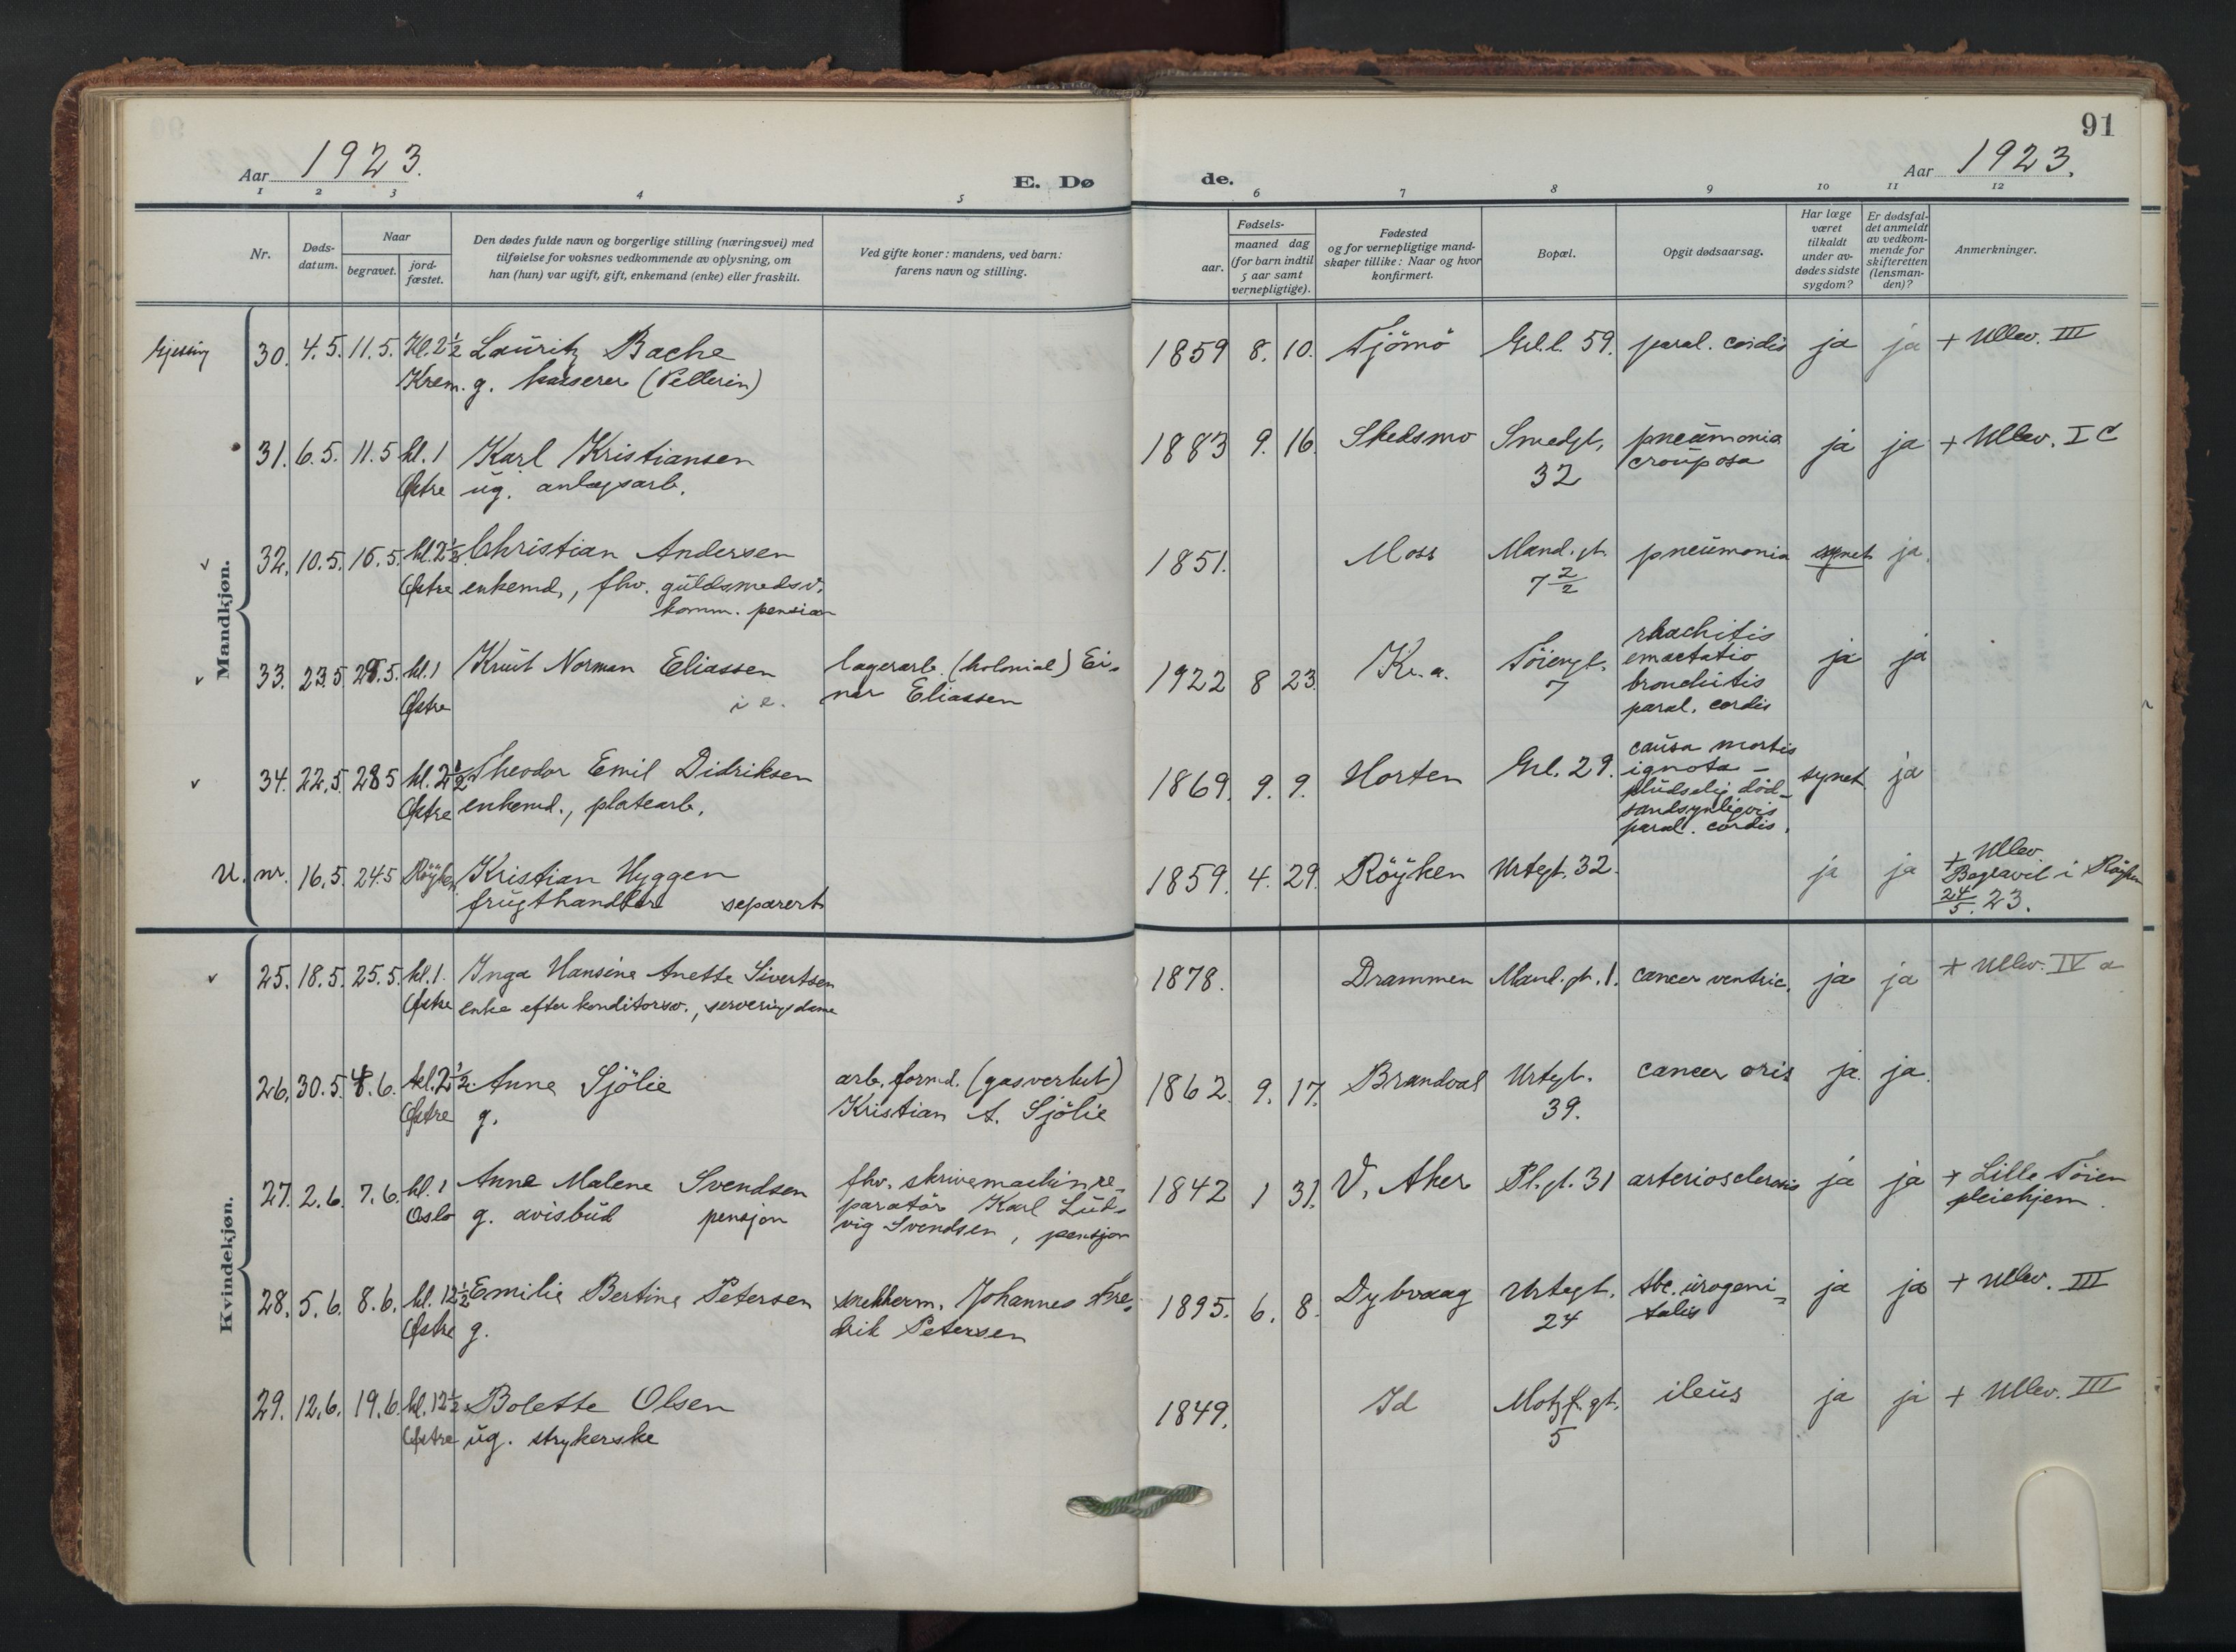 91
Aar 1923.
E. Døde.
Aar 1923.
1 2 3 4 5 6 7 8 9 10 11 12
Nr.
Døds-
datum.
Naar
begravet.
jord-
fæstet.
Den dødes fulde navn og borgerlige stilling (næringsvei) med
tilføielse for voksnes vedkommende av oplysning, om
han (hun) var ugift, gift, enkemand (enke) eller fraskilt.
Ved gifte koner: mandens, ved barn:
farens navn og stilling.
Fødsels-
aar.
maaned dag
(for barn indtil
5 aar samt
vernepligtige).
Fødested
og for vernepligtige mand-
skaper tillike: Naar og hvor
konfirmert.
Bopæl.
Opgit dødsaarsag.
Har læge
været
tilkaldt
under av-
dødes sidste
sygdom?
Er dødsfal-
det anmeldt
av vedkom-
mende for
skifteretten
(lensman-
den)?
Anmerkninger.
Mandkjøn.
30. 4.5. 11.5. Kl. 2½ Lauritz Bache 1859 8. 10. Tjömö Grl.l. 59. paral. cordis ja ja + Ullev. III
Krem. g. kasserer (Pellerin)
31. 6.5. 11.5 kl. 1 Karl Kristiansen 1883 9. 16. Skedsmo Smedgt. pneumonia ja ja + Ullev. I C
Østre ug. anlegsarb. 32 crouposa
32. 10.5. 16.5. kl. 2½ Christian Andersen 1851. Moss Mand.gt. pneumonia synet ja.
Østre enkemd., fhv. guldsmedsv. 7 2/2
komm. pension
33. 23.5 28.5. kl. 1 Knut Norman Eliassen lagerarb. (kolonial) Ei- 1922 8 23. Kr.a. Töiengt. rhachitis ja ja
Østre i e. nar Eliassen 7 emactatio
bronchitis
paral. cordis
34. 22.5. 28 5 kl. 2½ Theodor Emil Didriksen 1869. 9. 9. Horten Grl. 29. causa mortis synet ja
Østre enkemd., platearb. ignota -
pludselig död -
sandsynligvis
paral. cordis.
U. nr. 16.5. 24.5 Röyken Kristian Hyggen 1859. 4. 29. Röyken Urtegt. 32. ja ja + Ullev.
frugthandler separert Begravet i Röyken
24/5. 23.
Kvindekjøn.
25. 18.5. 25.5 kl. 1. Inga Hansine Anette Sivertsen 1878. Drammen Mand.gt. 1. cancer ventric. ja ja + Ullev. IV a
Østre enke efter konditorsv., serveringsdame
26. 30.5. 4.6. kl. 2½. Anne Sjölie arb. formd. (gasverket) 1862. 9. 17. Brandval Urtegt. cancer oris ja. ja.
Østre g. Kristian A. Sjölie 39.
27. 2.6. 7.6. kl. 1 Anne Malene Svendsen fhv. skrivemaskinre- 1842 1 31. V. Aker Pl.gt. 31 arteriosclerosis ja ja + Lille Töien
Oslo g. avisbud pensjon paratör Karl Lud- pleiehjem.
vig Svendsen, pensjon
28. 5.6. 8.6. kl. 12½ Emilie Bertine Petersen snekkerm. Johannes Fre- 1895. 6. 8. Dybvaag Urtegt. tbc. urogeni- ja ja + Ullev. III
Østre g. drik Petersen 24 talis
29. 12.6. 19.6. kl. 12½. Bolette Olsen 1849. Id Motzf.gt. ileus ja ja + Ullev. III
Østre ug. strykerske 5